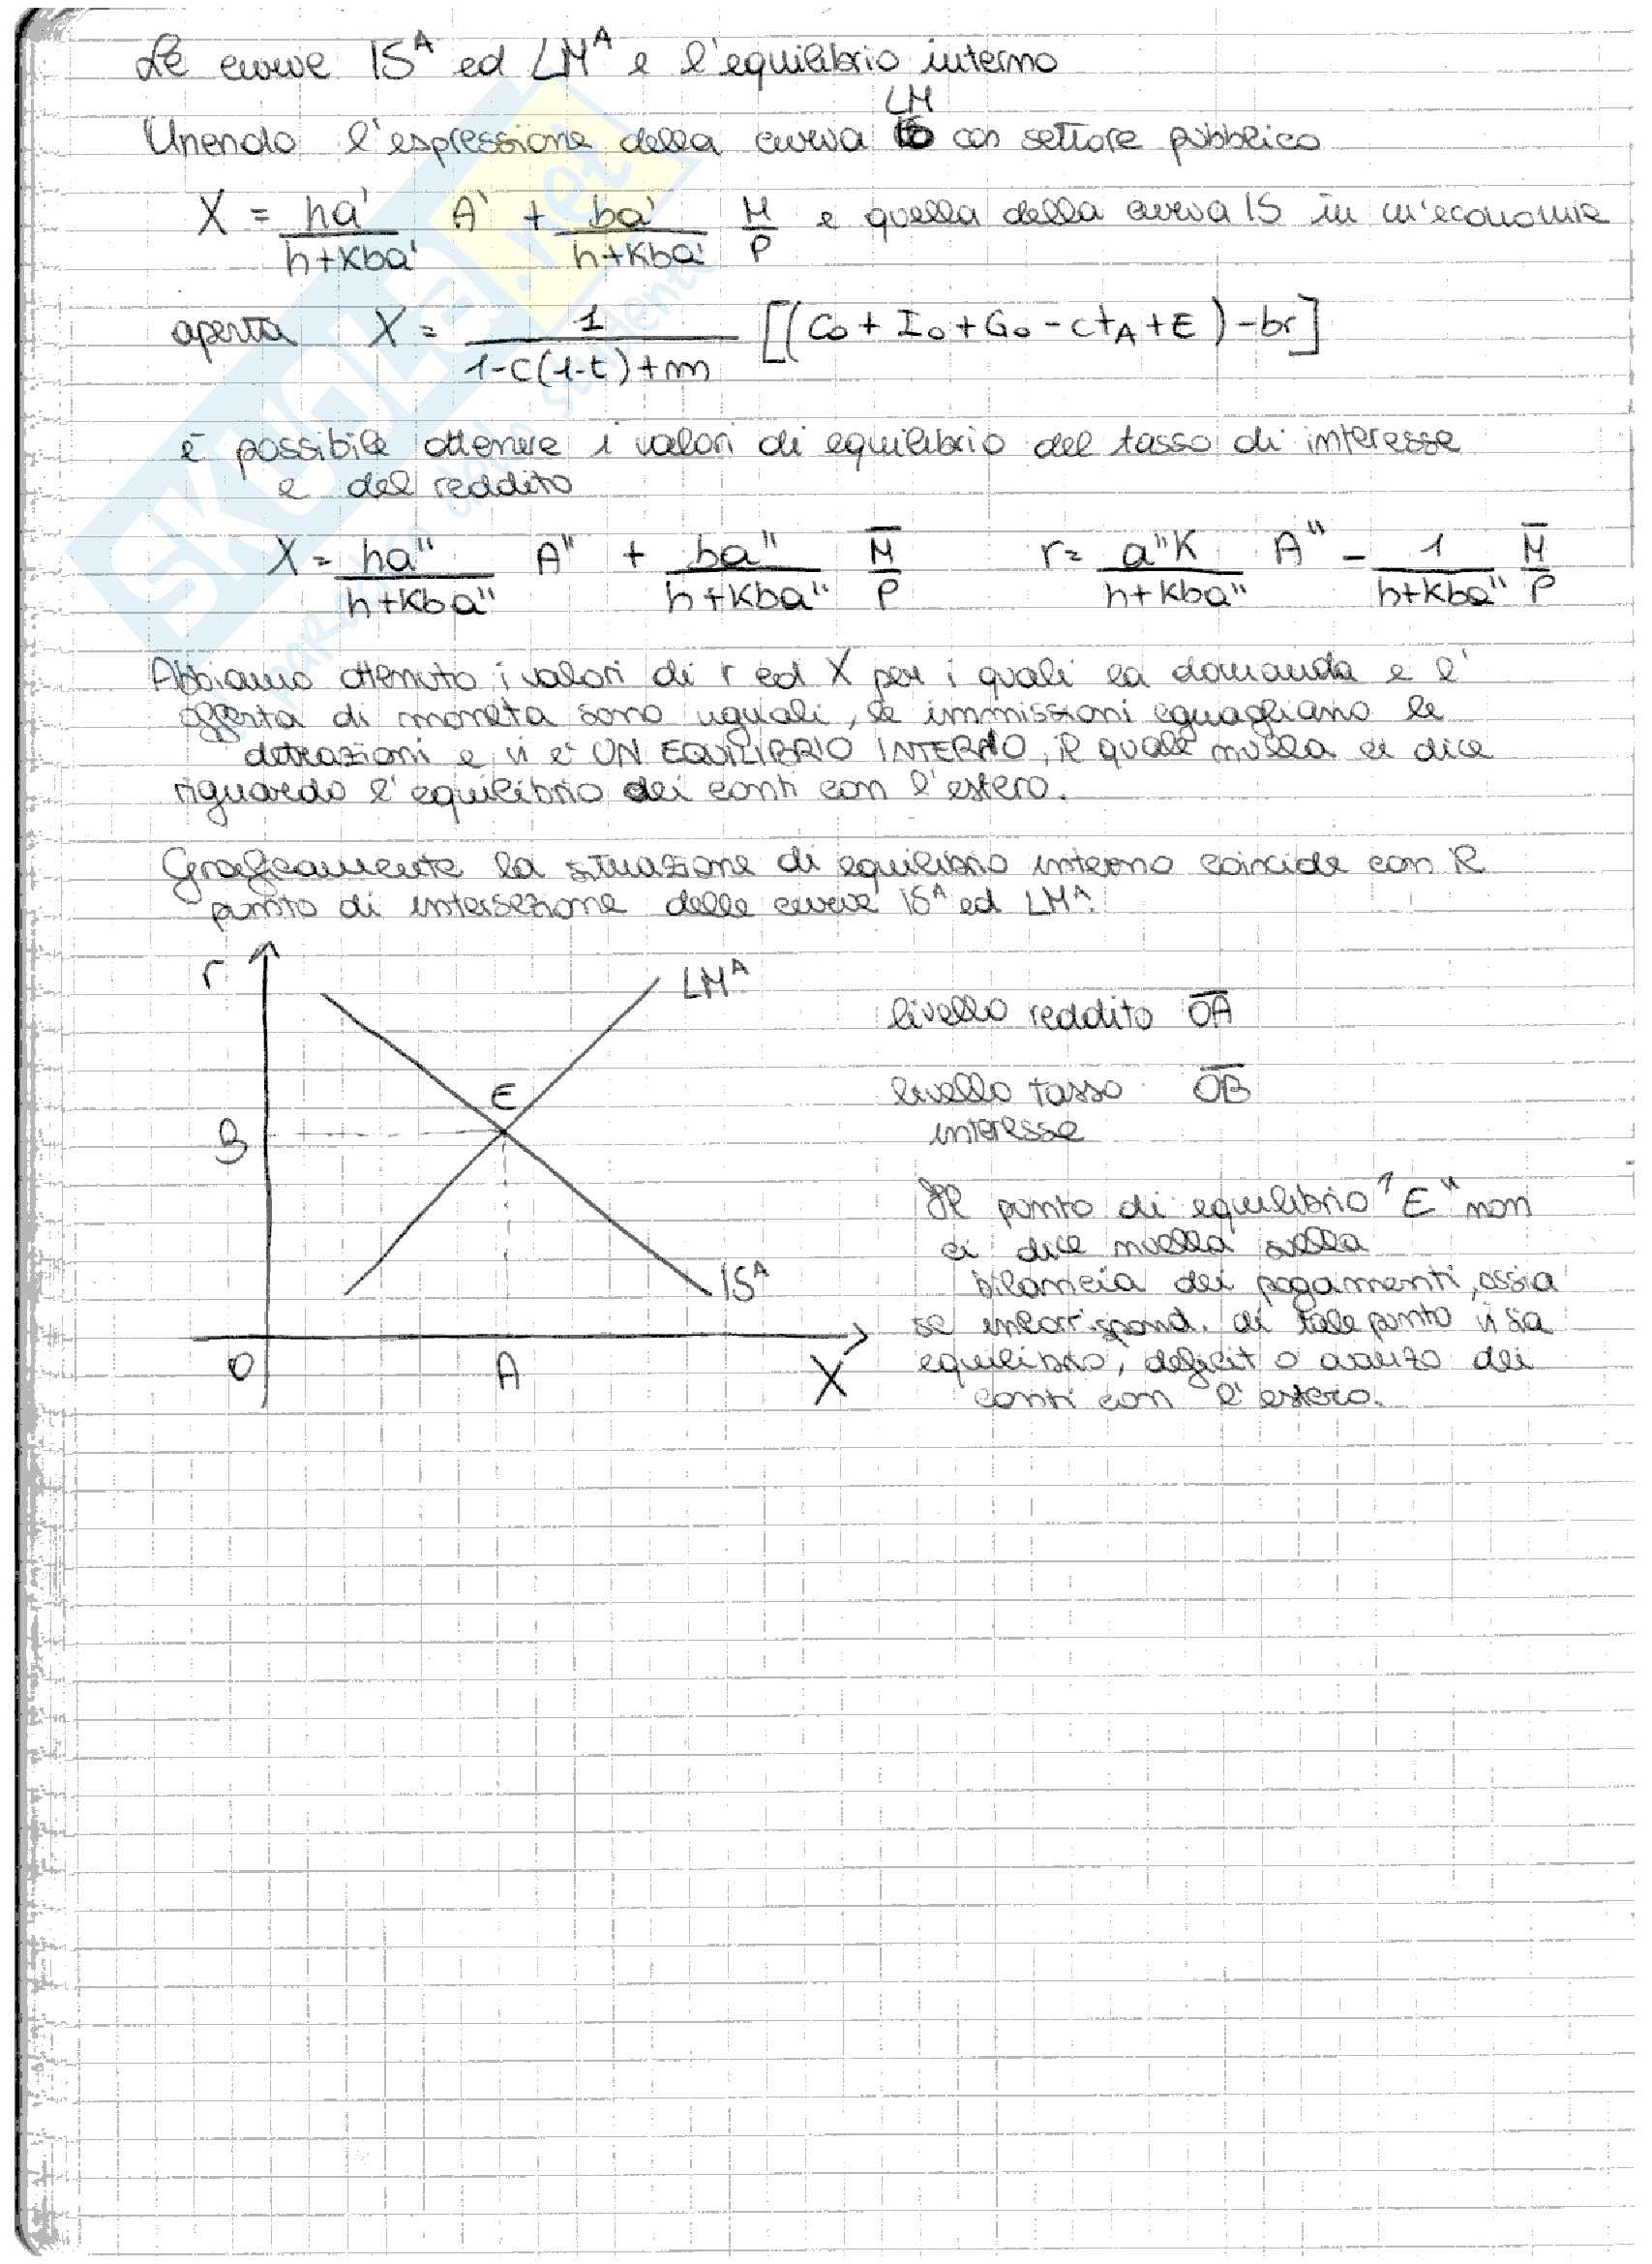 Le curve IS^A ed LM^A e l'equilibrio interno
Unendo l'espressione della curva LM con settore pubblico
X = ha'/(h+Kba') A' + ba'/(h+Kba') M/P e quella della curva IS in un'economia
aperta X = 1/(1-c(1-t)+m) [(C₀ + I₀ + G₀ - ct_A + E) - br]
è possibile ottenere i valori di equilibrio del tasso di interesse
e del reddito
X = ha"/(h+Kba") A" + ba"/(h+Kba") M̅/P r = a"K/(h+Kba") A" - 1/(h+Kba") M̅/P
Abbiamo ottenuto i valori di r ed X per i quali la domanda e l'
offerta di moneta sono uguali, le immissioni eguagliano le
detrazioni e vi è UN EQUILIBRIO INTERNO, il quale nulla ci dice
riguardo l'equilibrio dei conti con l'estero.
Graficamente la situazione di equilibrio interno coincide con il
punto di intersezione delle curve IS^A ed LM^A.
r
LM^A
E
B
IS^A
O
A
X
livello reddito O̅A̅
livello tasso O̅B̅
interesse
Il punto di equilibrio "E" non
ci dice nulla sulla
bilancia dei pagamenti, ossia
se in corrispond. di tale punto vi sia
equilibrio, deficit o avanzo dei
conti con l'estero.
SKUOLA.net